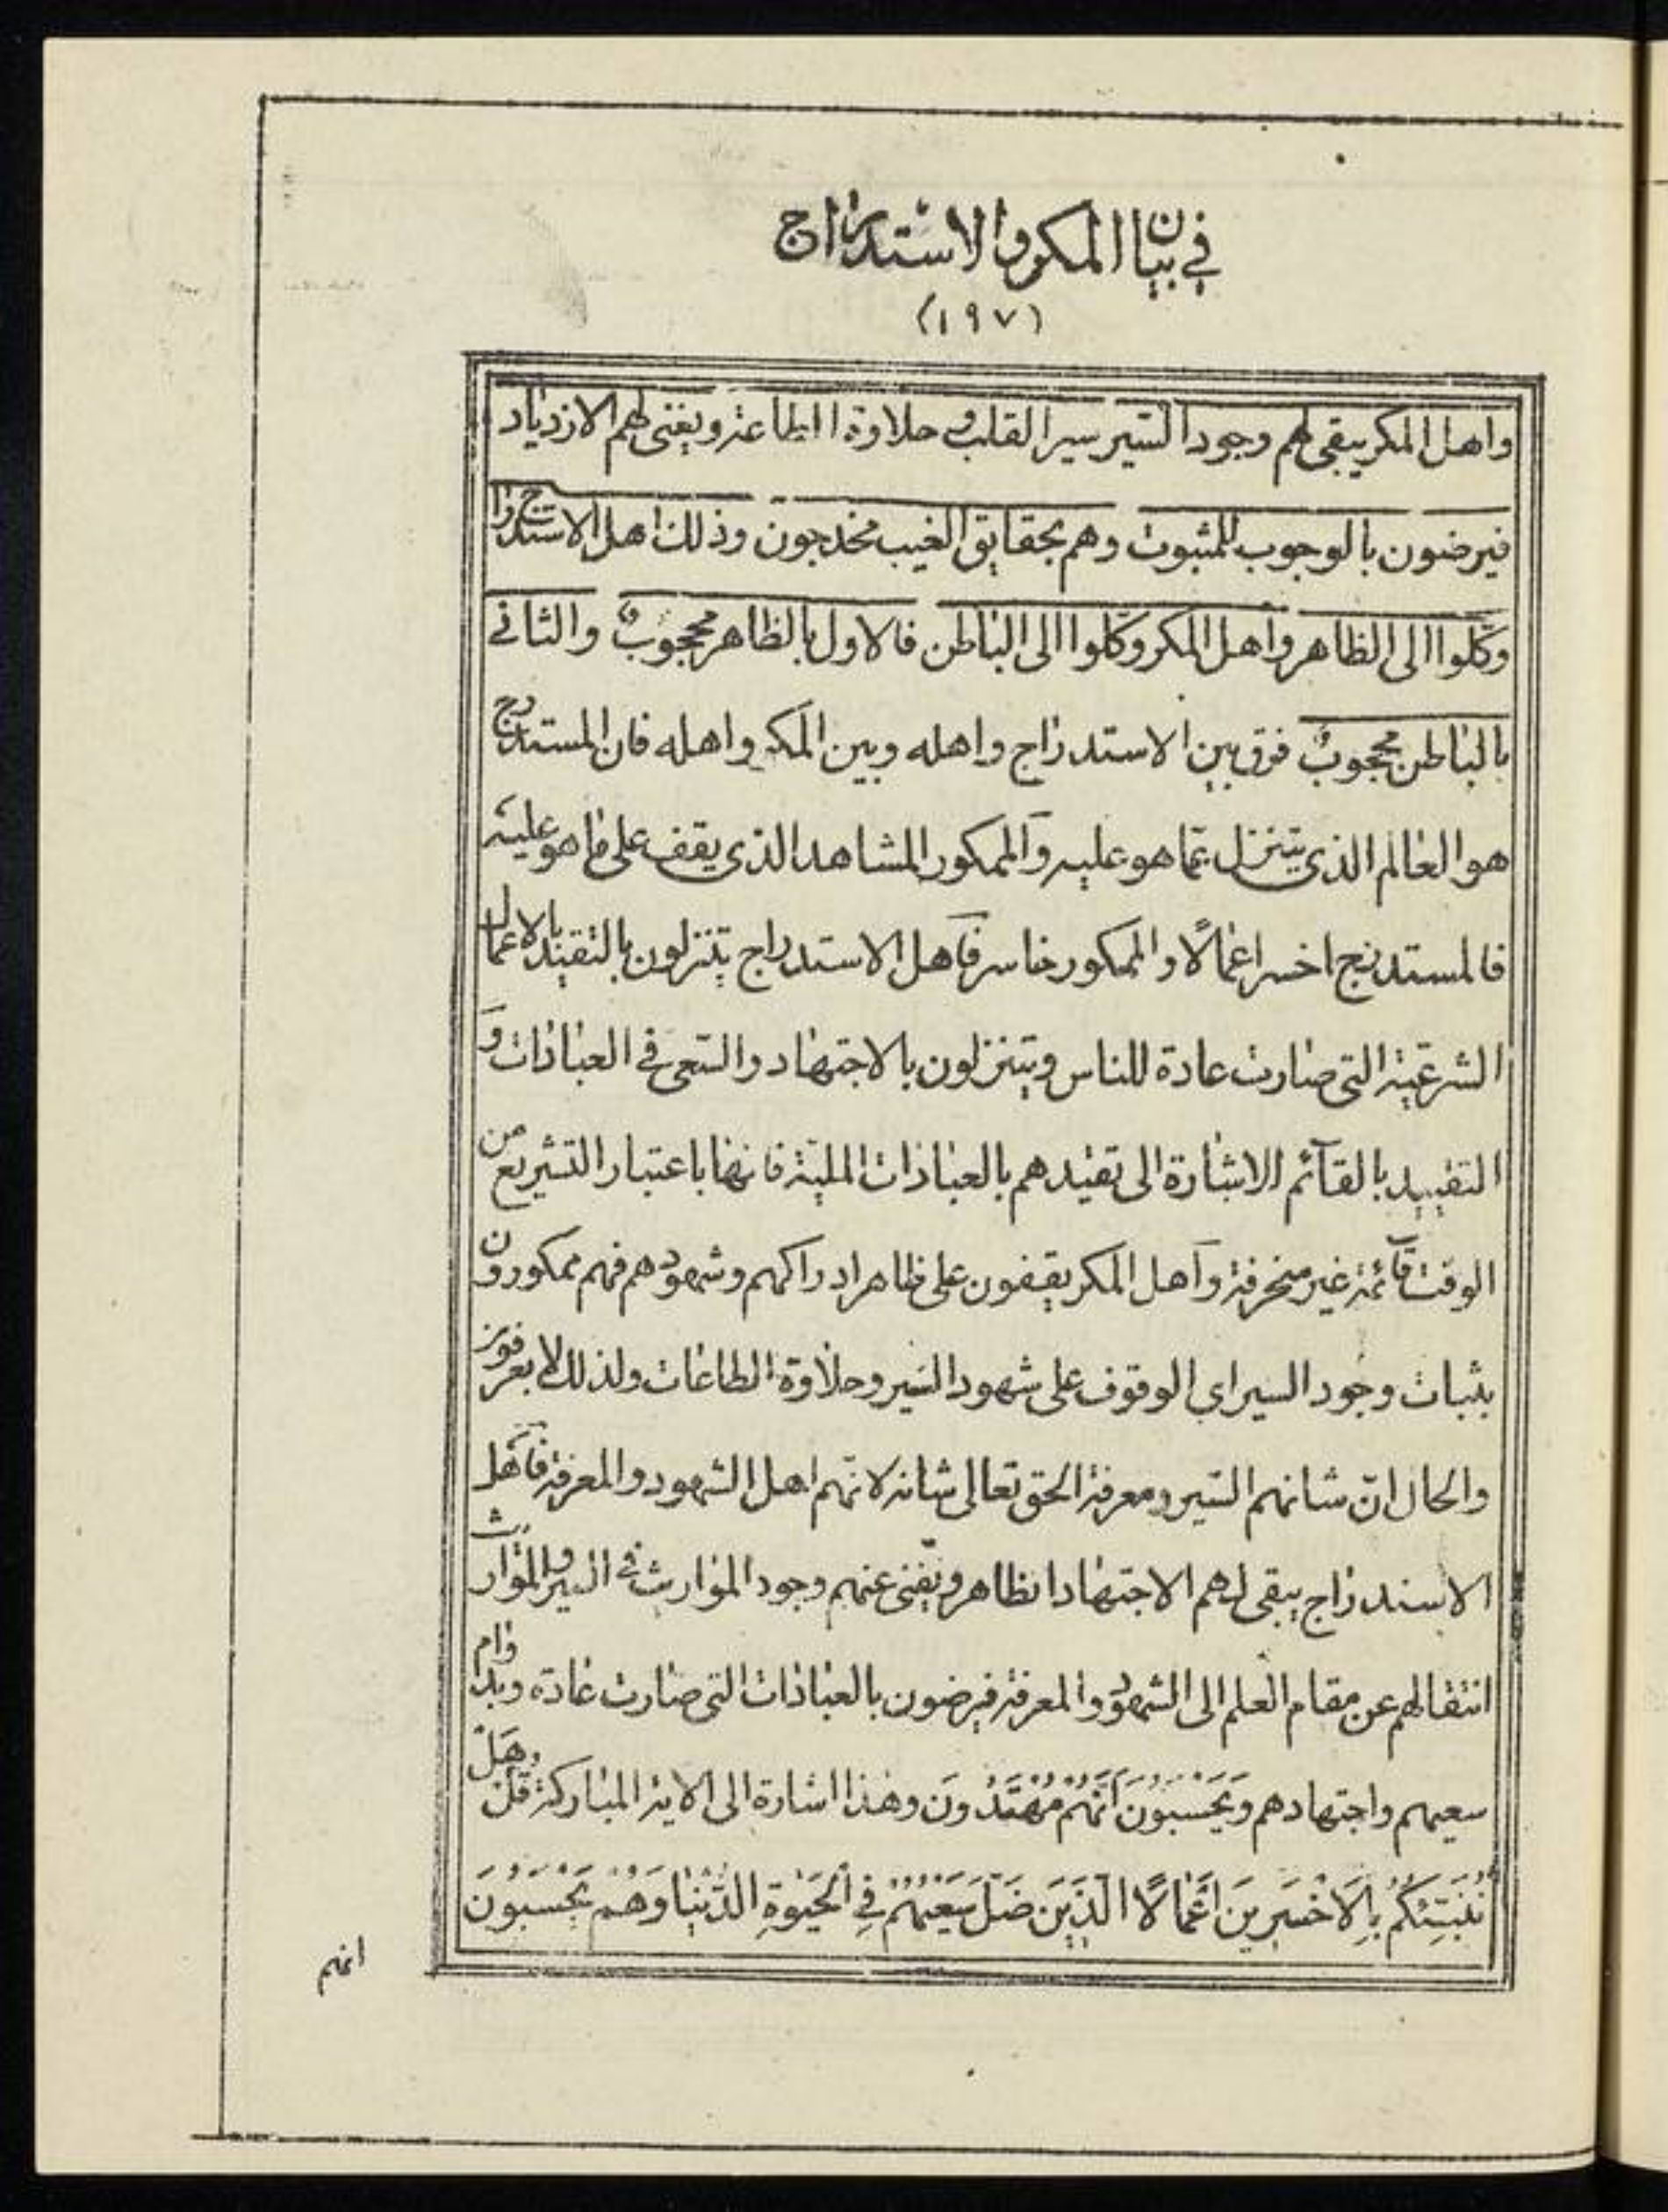 في بيان المكر والاستدراج
(١٩٧)
واهل المكر يبقى لهم وجود السير سير القلب في حلاوة الطاعة ويفنى لهم الازدياد
فيرضون بالوجوب للمثبوت وهم بحقايق الغيب مخدجون وذلك اهل الاستدراج
وكّلوا الى الظاهر واهل المكر وكّلوا الى الباطن فالاول بالظاهر محجوبٌ والثاني
بالباطن محجوبٌ فرق بين الاستدراج واهله وبين المكر واهله فان المستدرج
هو العالم الذي يتنزل عما هو عليه والممكور المشاهد الذي يقف على ما هو عليه
فالمستدرج اخسر اعمالًا والممكور خاسر فآهل الاستدراج يتنزلون بالتقيد بالاعمال
الشرعّية التي صارت عادة للناس ويتنزلون بالاجتهاد والسّعي في العبادات وَ
التقييد بالقآئم الاشارة الى تقيدهم بالعبادات المليّة فانها باعتبار التشريع من
الوقت قآئمة غير منحرفة وآهل المكر يقفون على ظاهر ادراكهم وشهودهم فهم ممكورون
بثبات وجود السير اى الوقوف على شهود السّير وحلاوة الطاعات ولذلك لا يعرفون
والحال انّ شانهم السّير ومعرفة الحق تعالى شانه لانّهم اهل الشهود والمعرفة فآهل
الاستدراج يبقى لهم الاجتهاد الظاهر ويفنى عنهم وجود الموارث في السير والموارث
انتقالهم عن مقام العلم الى الشهود والمعرفة فيرضون بالعبادات التي صارت عادة وبدوام
سعيهم واجتهادهم وَيَحْسَبُونَ اَنَّهُمْ مُهْتَدُونَ وهذا اشارة الى الاية المباركة قُلْ هَلْ
نُنَبِّئُكُمْ بِالْاَخْسَرِينَ اَعْمَالًا الَّذِينَ ضَلَّ سَعْيُهُمْ فِي الْحَيٰوةِ الدُّنْيَا وَهُمْ يَحْسَبُونَ
انهم